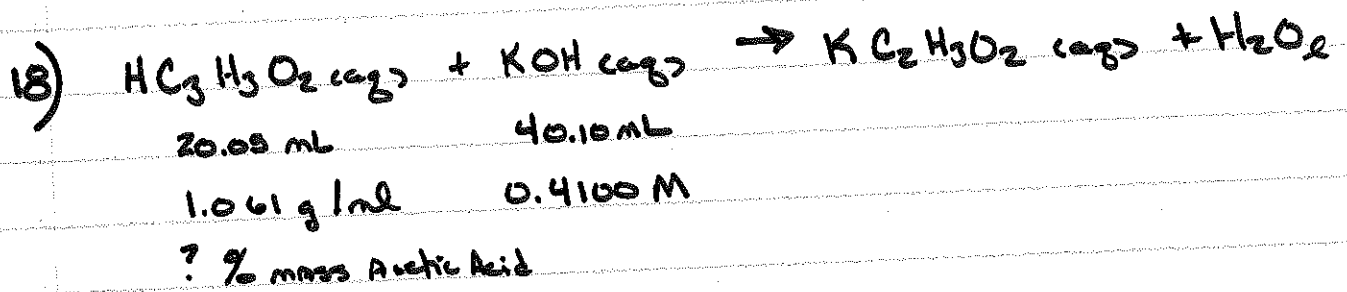 18) HC3H3O2 (aq) + KOH (aq) → KC2H3O2 (aq) + H2O l
20.05 mL 40.10 mL
1.061 g/ml 0.4100 M
? % mass Acetic Acid